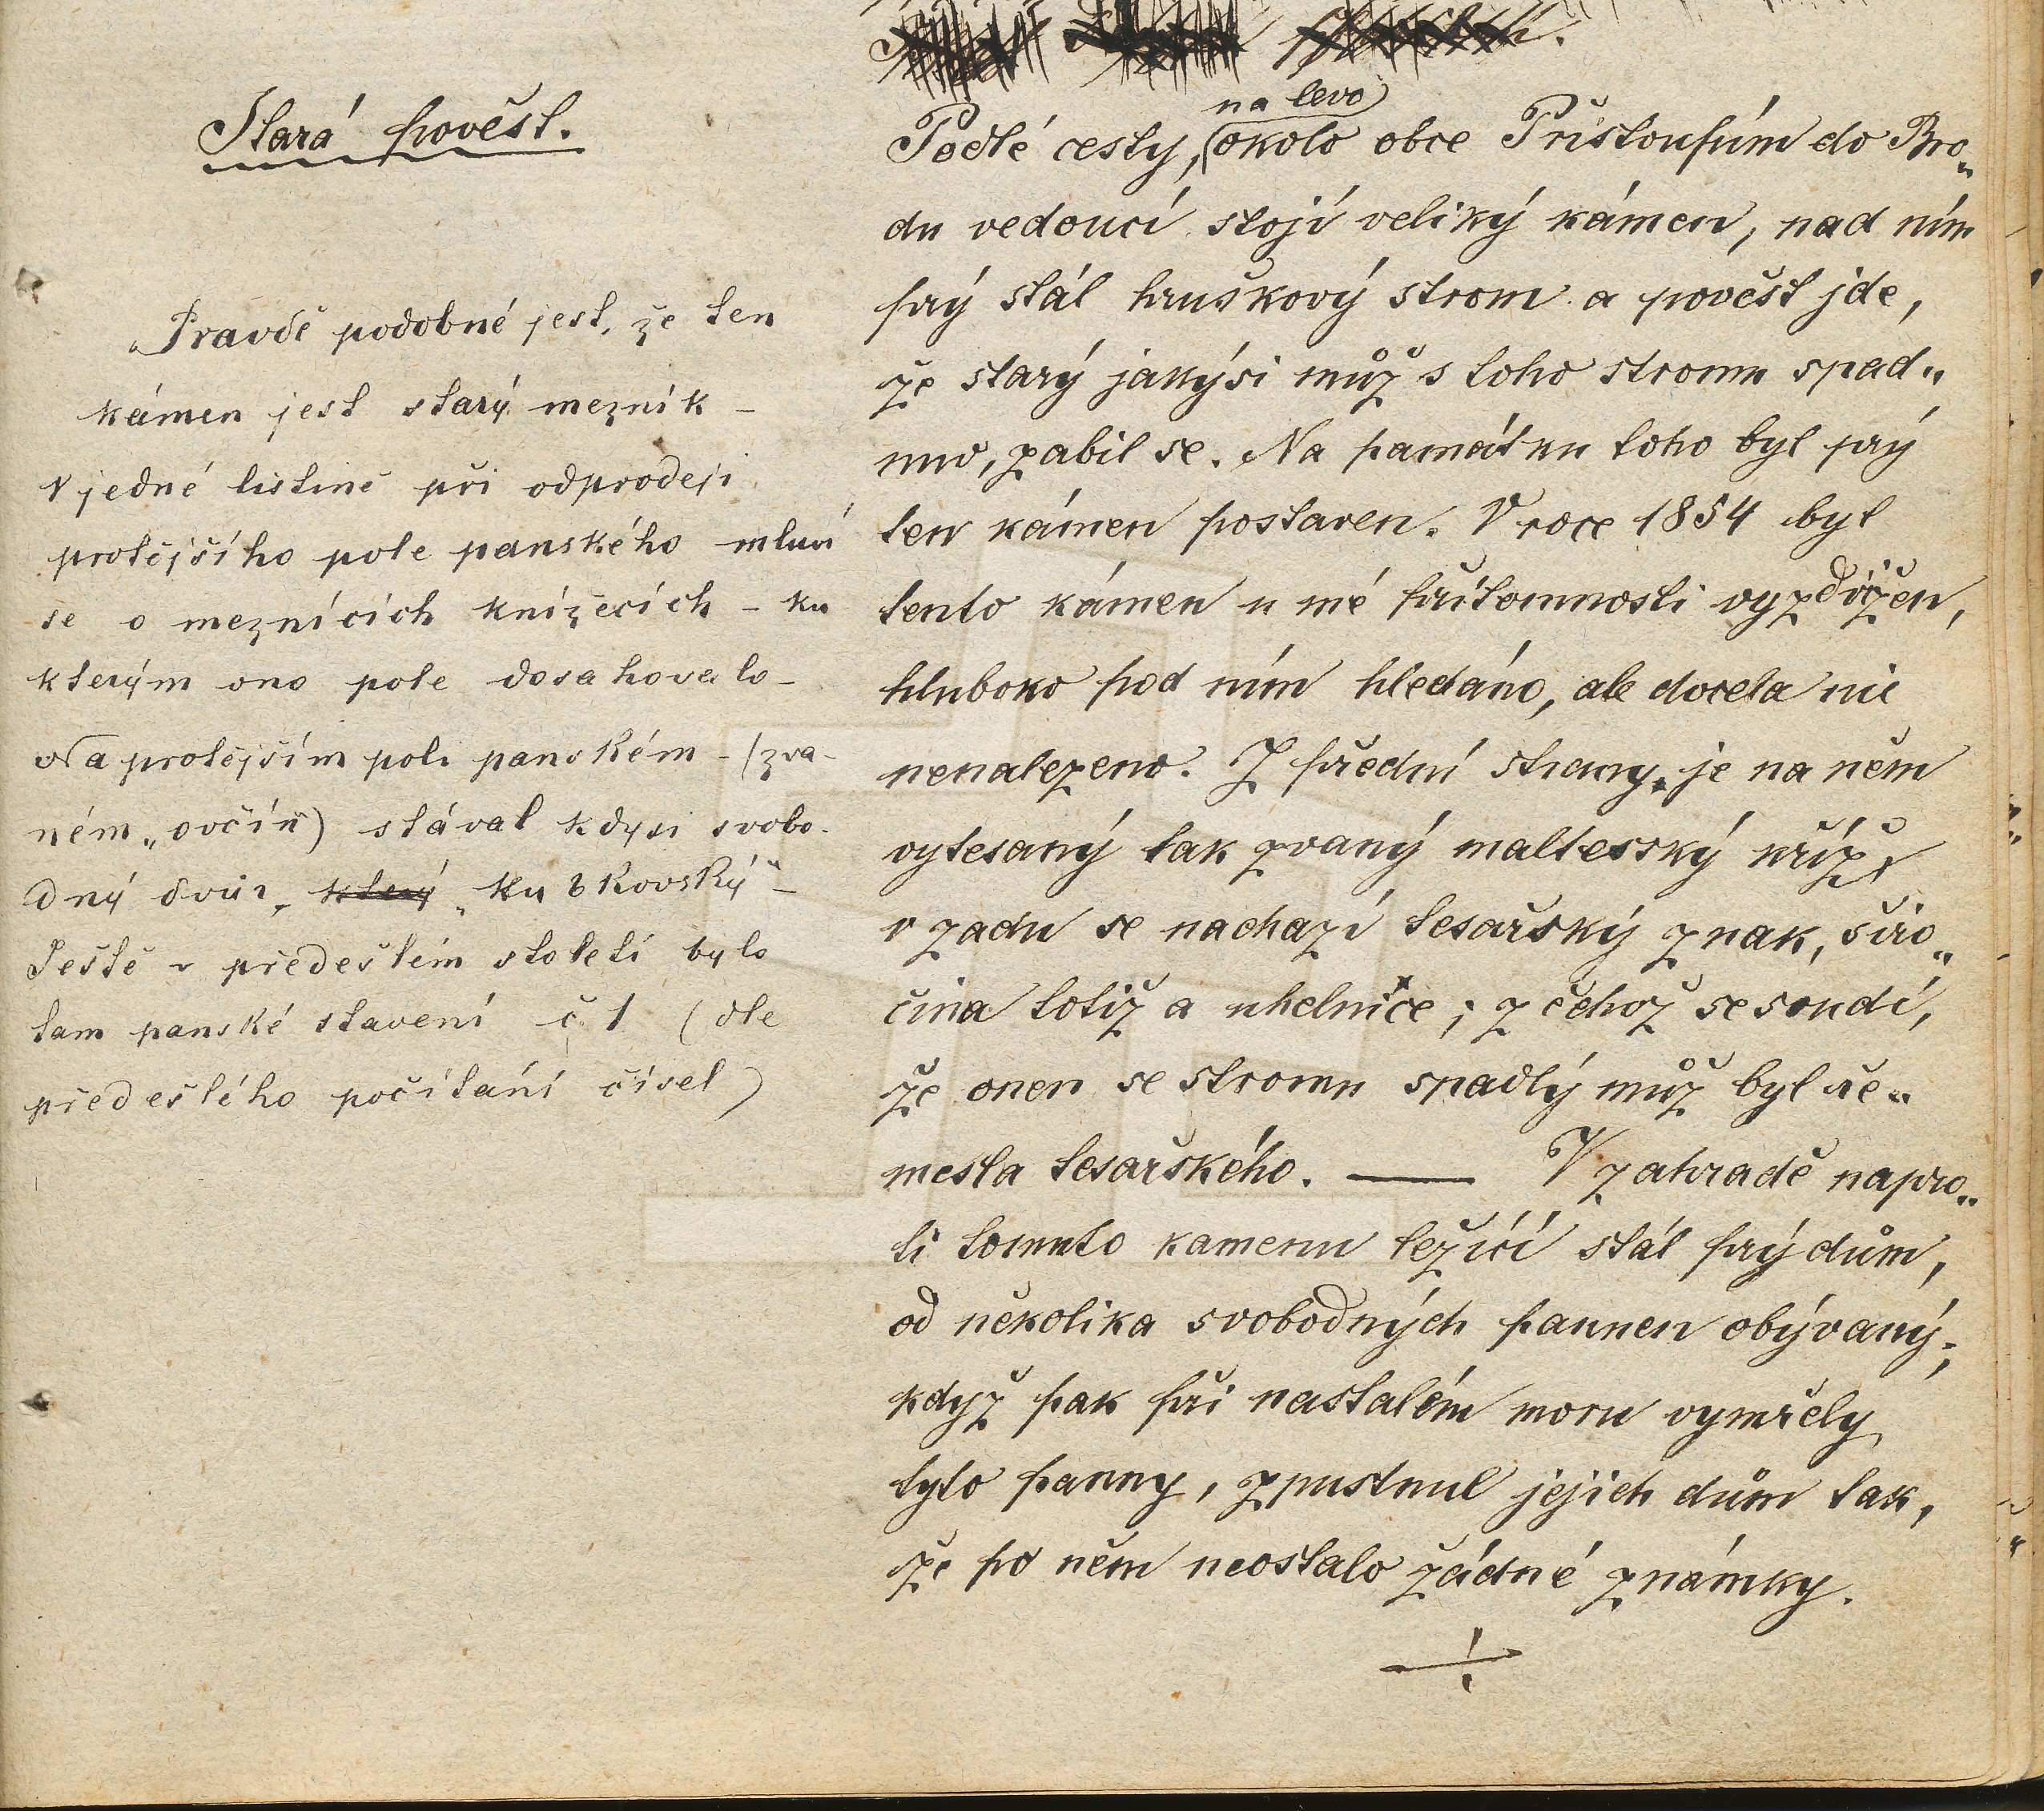 Stará pověst.
Pravdě podobné jest, že ten
kámen jest starý mezník –
V jedné listině při odprodeji
protějšího pole panského mluví
se o meznících knížecích – ku
kterým ono pole dosahovalo –
Na protějším poli panském – (zva-
ném „ovčín“) stával kdysi svobo-
dný dvůr, který „Kubkovský“ –
Ještě v předešlém století bylo
tam panské stavení č 1 (dle
předešlého počítání čísel)
na levo
Podlé cesty, okolo obce Přistoupím do Bro„
du vedoucí stojí veliký kámen, nad ním
prý stál hruškový strom a pověst jde,
že starý jakýsi můž s toho stromu spad„
nuv, zabil se. Na památku toho byl prý
ten kámen postaven. V roce 1854 byl
tento kámen u mé přítomnosti vyzdvižen,
hluboko pod ním hledáno, ale docela nic
nenalezeno. Z přední strany je na něm
vytesaný tak zvaný maltesský kříž,
v zadu se nachazí tesařský znak, širo„
čina totiž a uhelnice; z čehož se soudí,
že onen se stromu spadlý můž byl ře„
mesla tesařského. — V zahradě napro„
ti tomuto kamenu ležící stál prý dům,
od několika svobodných pannen obývaný;
když pak při nastalém moru vymřely
tyto panny, zpustnul jejich dům tak,
že po něm neostalo žádné známky.